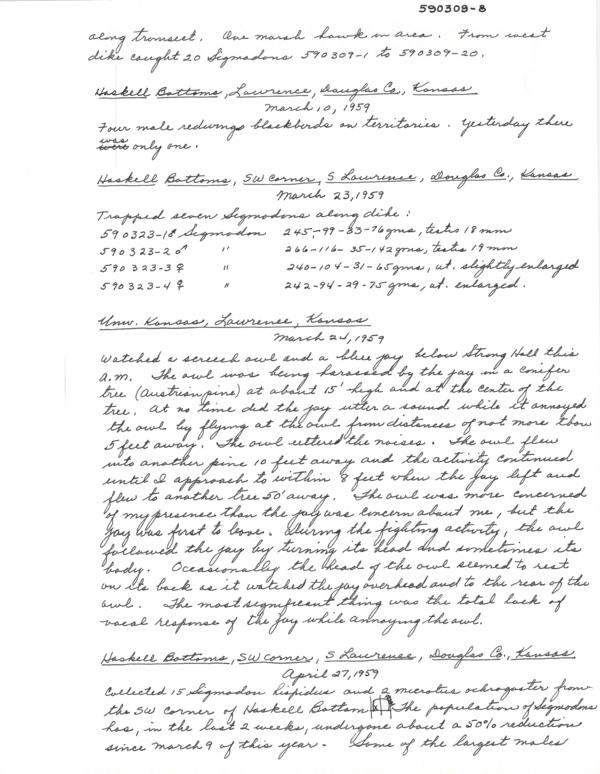 590308-8
along transect. One marsh hawk in area. From west
dike caught 20 Sigmodons 590309-1 to 590309-20.
Haskell Bottoms, Lawrence, Douglas Co., Kansas
March 10, 1959
Four male redwings blackbirds on territories. Yesterday there
was
were only one.
Haskell Bottoms, SW Corner, S Lawrence, Douglas Co., Kansas
March 23, 1959
Trapped seven Sigmodons along dike:
590323-1♂ Sigmodon 245-99-33-76gms, testis 18 mm
590323-2♂ " 266-116-35-142gms, testis 19 mm
590323-3♀ " 240-104-31-65gms, ut. slightly enlarged
590323-4♀ " 242-94-29-75gms, ut. enlarged.
Univ. Kansas, Lawrence, Kansas
March 24, 1959
Watched a screech owl and a blue jay below Strong Hall this
A.M. The owl was being harassed by the jay in a conifer
tree (Austrian pine) at about 15' high and at the center of the
tree. At no time did the jay utter a sound while it annoyed
the owl by flying at the owl from distances of not more than
5 feet away. The owl uttered the noises. The owl flew
into another pine 10 feet away and the activity continued
until I approach to within 8 feet when the jay left and
flew to another tree 50' away. The owl was more concerned
of my presence than the jay was concern about me, but the
jay was first to leave. During the fighting activity, the owl
followed the jay by turning its head and sometimes its
body. Ocassionally the head of the owl seemed to rest
on its back as it watched the jay overhead and to the rear of the
owl. The most significant thing was the total lack of
vocal response of the jay while annoying the owl.
Haskell Bottoms, SW Corner, S Lawrence, Douglas Co., Kansas
April 27, 1959
Collected 15 Sigmodon hispidus and 2 microtus ochrogaster from
the SW corner of Haskell Bottom The population of Sigmodons
has, in the last 2 weeks, undergone about a 50% reduction
since March 9 of this year. Some of the largest males